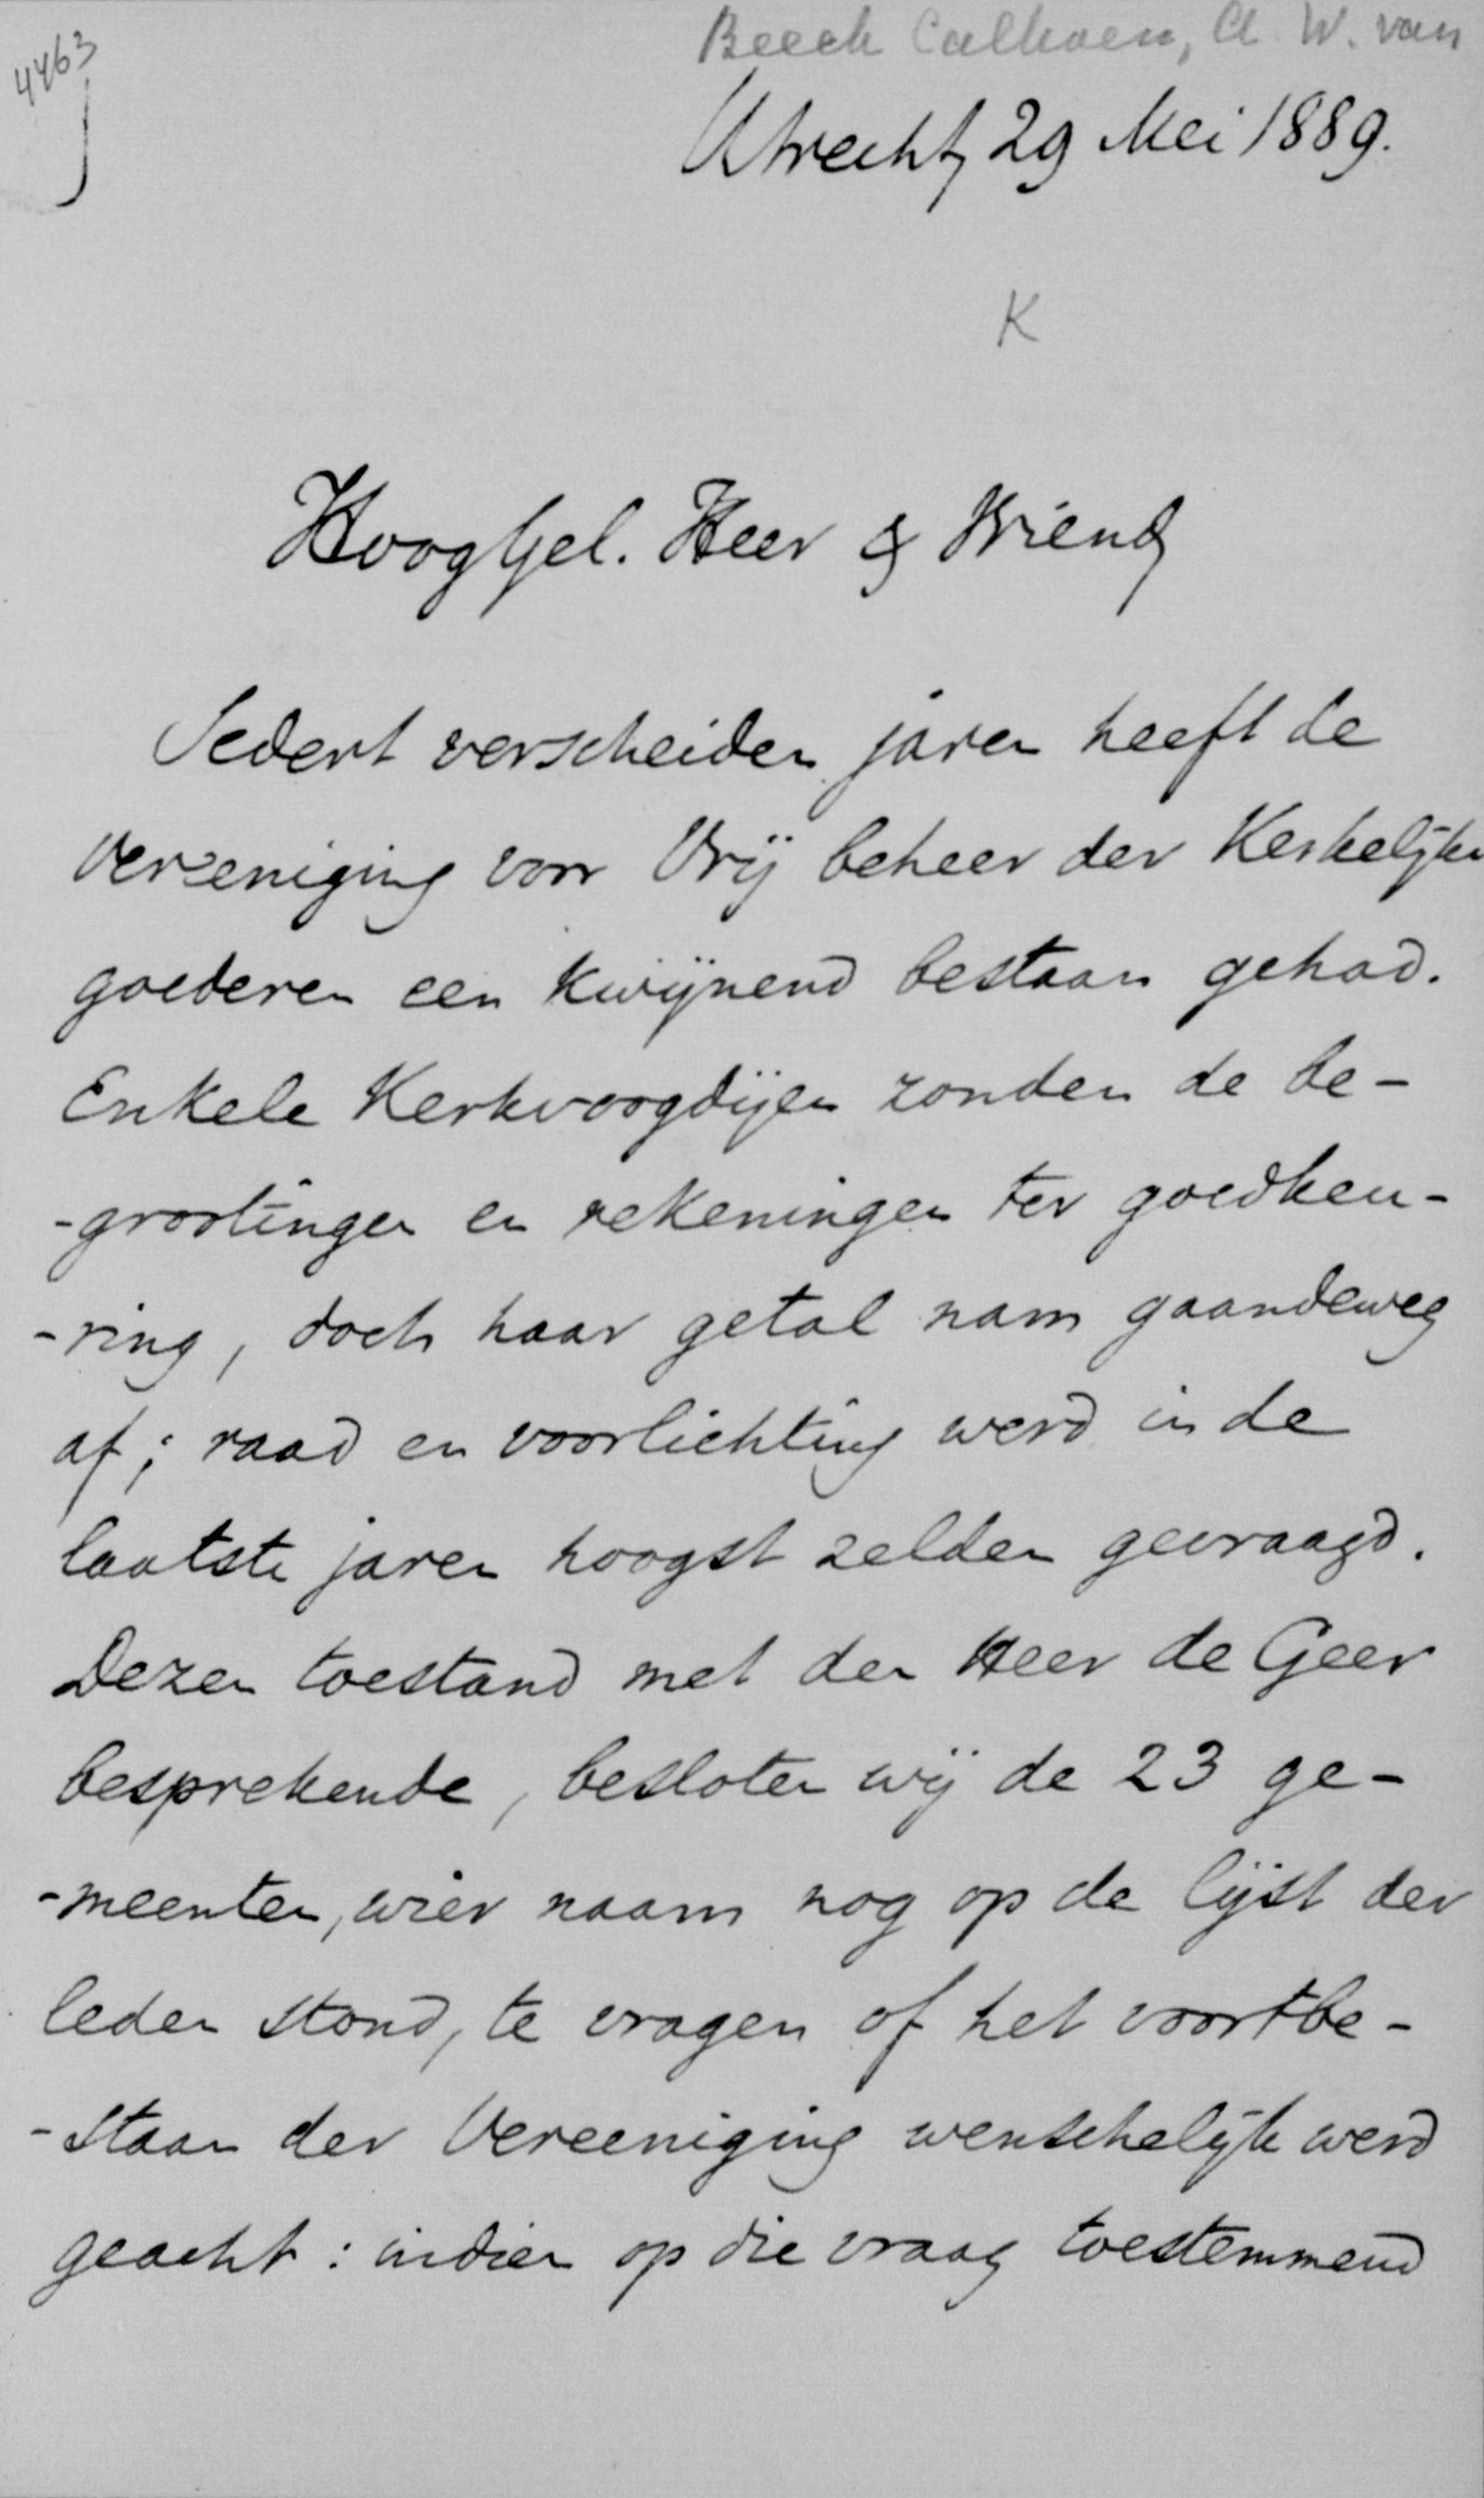 4463
Beeck Calkoen, A. W. van
Utrecht, 29 Mei 1889.
K
HoogGel. Heer & Vriend,
Sedert verscheiden jaren heeft de
Vereeniging voor Vrij beheer der Kerkelijke
goederen een kwijnend bestaan gehad.
Enkele Kerkvoogdijen zonden de be-
-grootingen en rekeningen ter goedkeu-
-ring, doch haar getal nam gaandeweg
af; raad en voorlichting werd in de
laatste jaren hoogst zelden gevraagd.
Dezen toestand met den Heer de Geer
besprekende, besloten wij de 23 ge-
-meenten, wier naam nog op de lijst der
leden stond, te vragen of het voortbe-
-staan der Vereeniging wenschelijk werd
geacht: indien op die vraag toestemmend